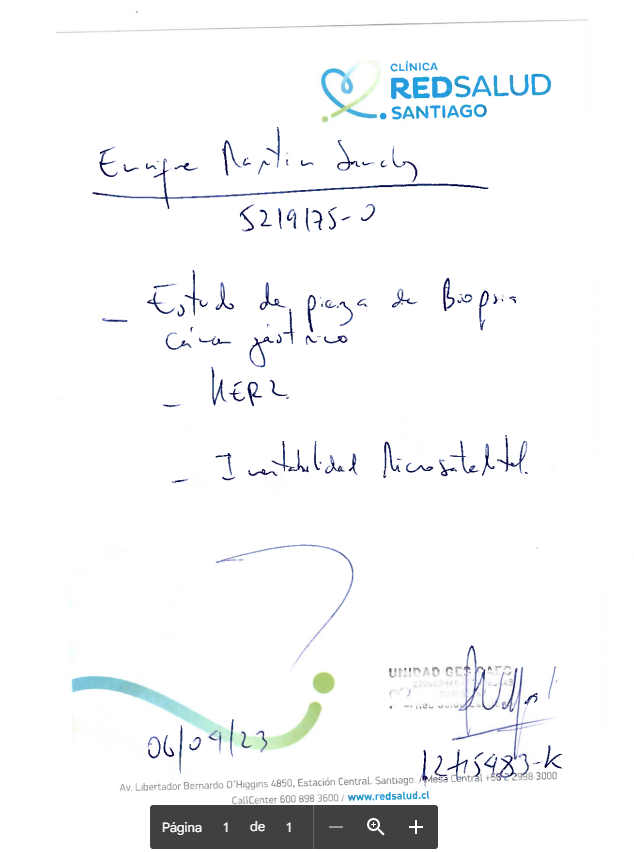 CLÍNICA
REDSALUD
SANTIAGO
Enrique Martin
5219175-0
- Estudio de pieza de Biopsia
cáncer gástrico
- HER2
- Inestabilidad Microsatelital.
UNIDAD GES
06/09/23
Av. Libertador Bernardo O'Higgins 4850, Estación Central. Santiago. / Mesa Central +56 2 2998 3000
CallCenter 600 898 3600 / www.redsalud.cl
Página 1 de 1